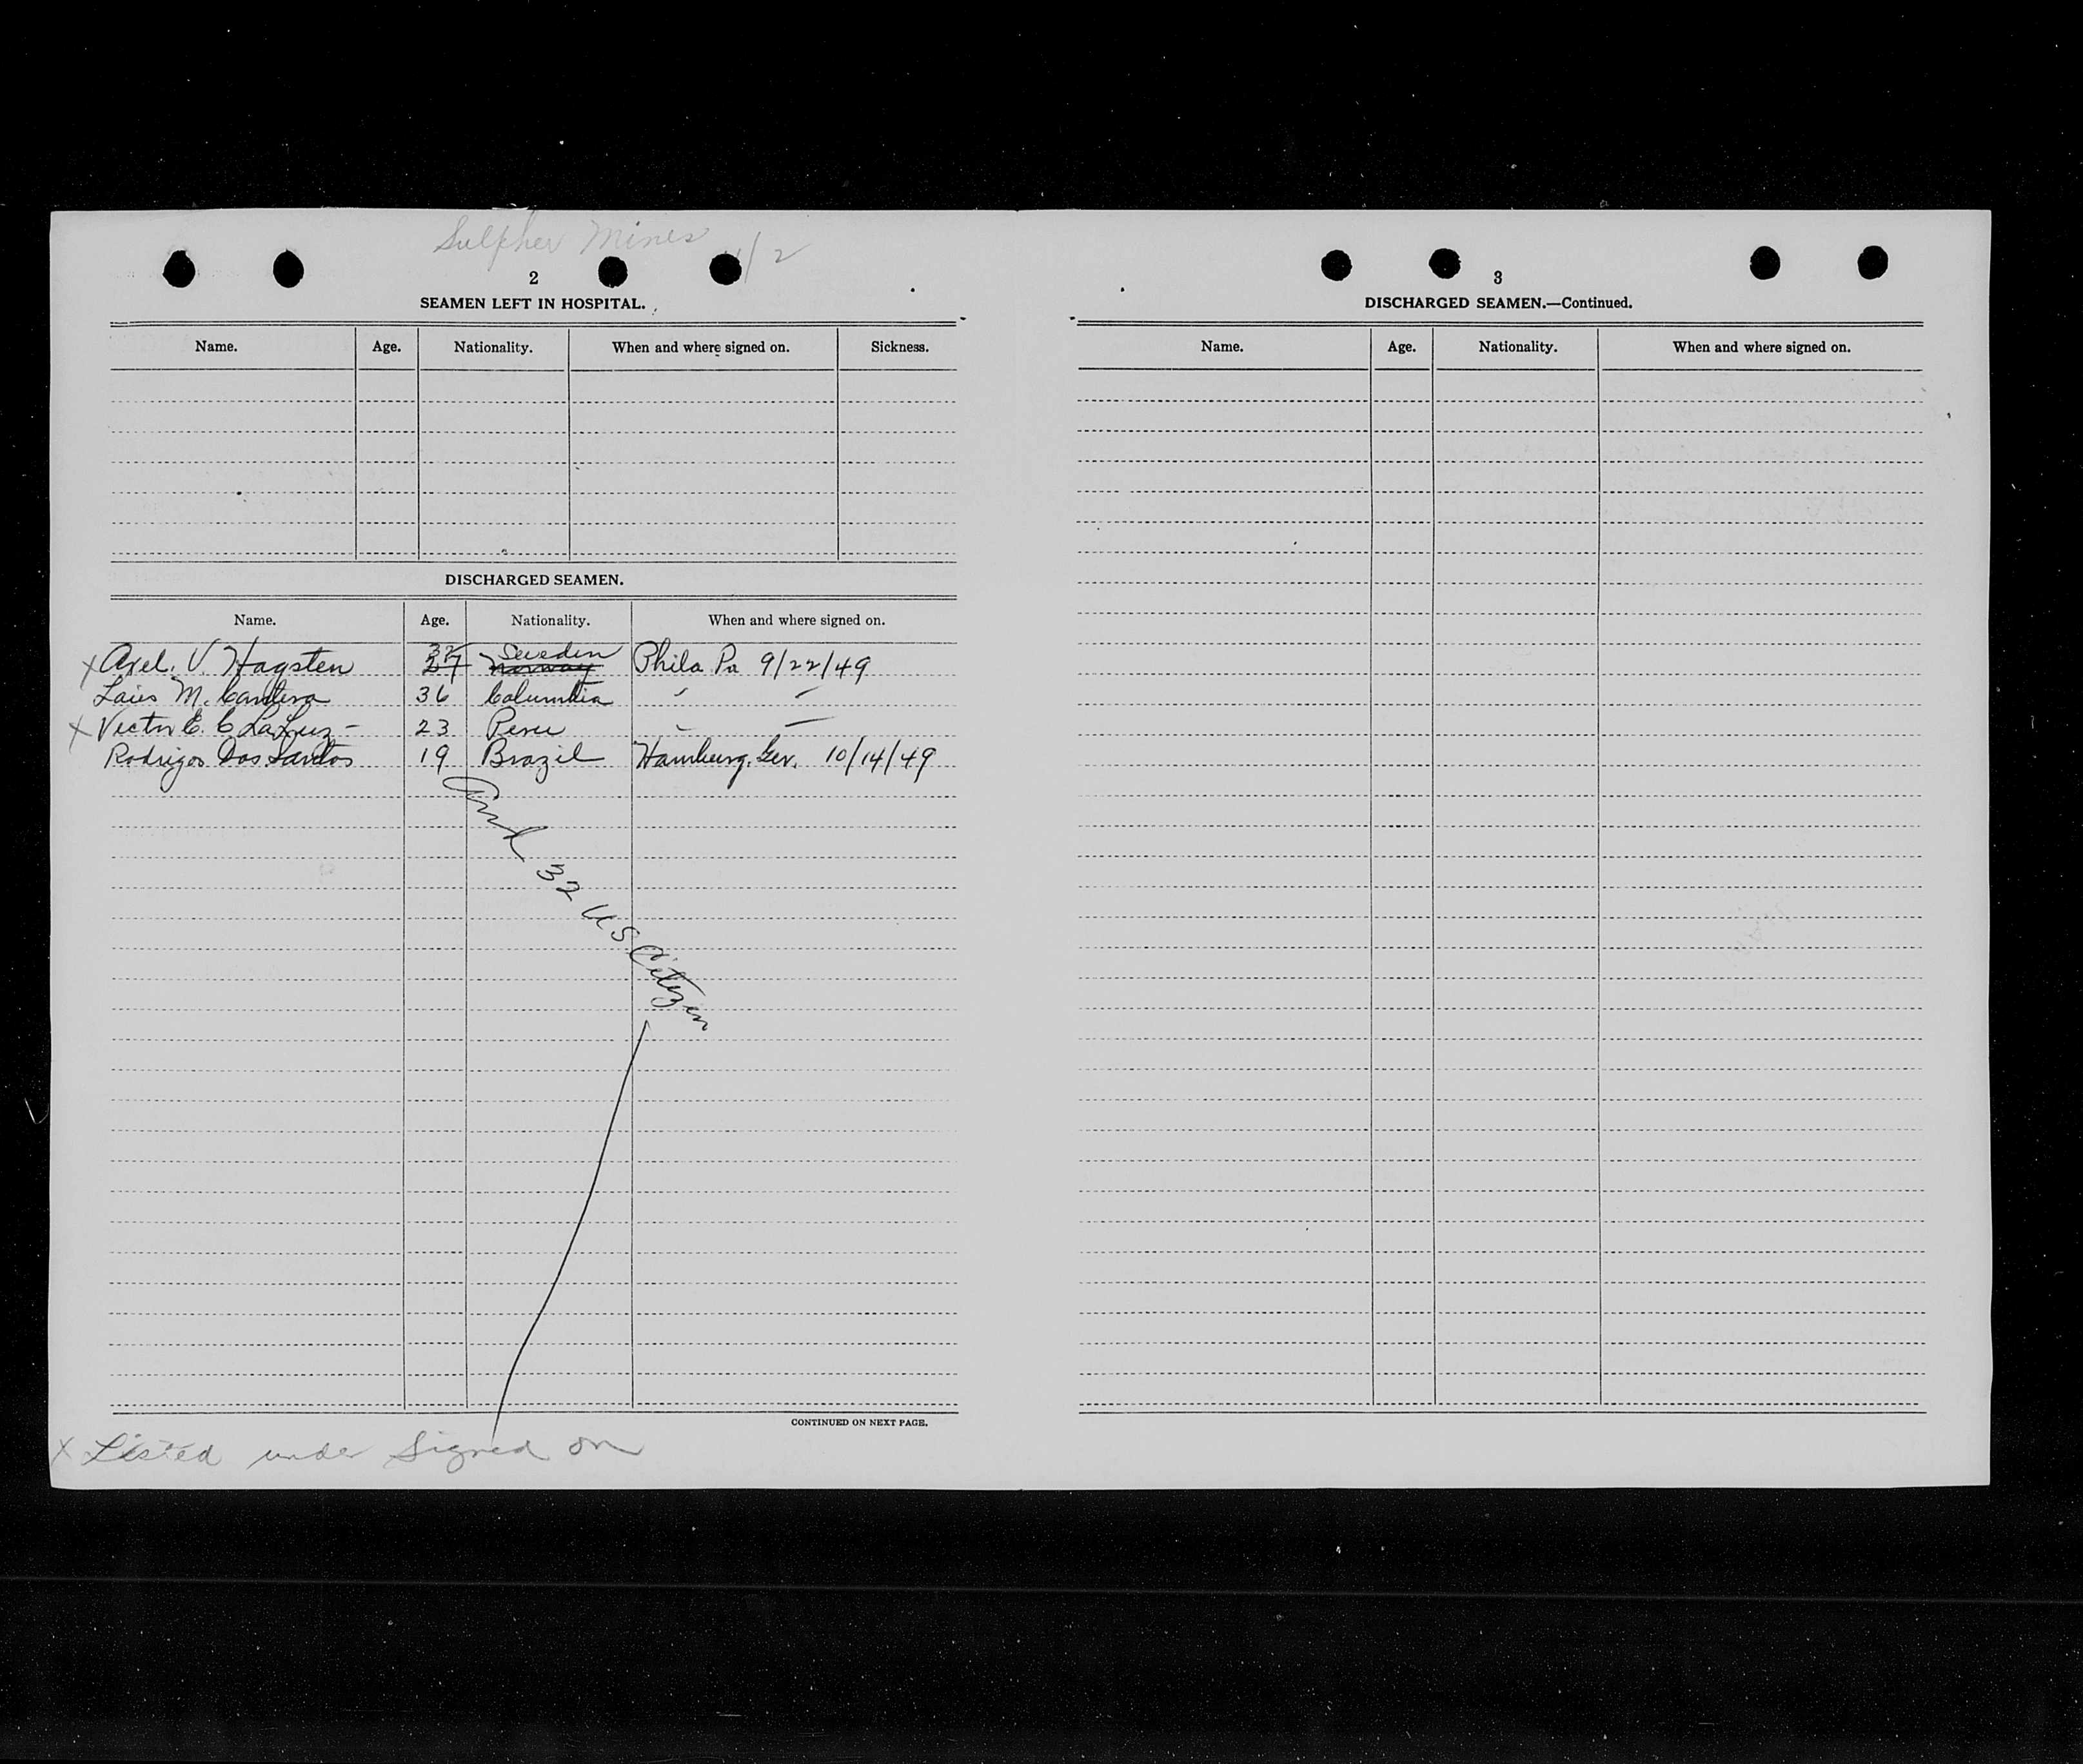 Sulpher Mines 11/2
2
SEAMEN LEFT IN HOSPITAL.
Name. Age. Nationality. When and where signed on. Sickness.
DISCHARGED SEAMEN.
Name. Age. Nationality. When and where signed on.
32 Sweden
x Axel. V. Hagsten 27 Norway Phila Pa 9/22/49
M. 36 Columbia " "
x Victor E. C LaLuz - 23 Peru " "
Rodrigos Dos Santos 19 Brazil Hamburg. Ger. 10/14/49
And 32 US Citizen
CONTINUED ON NEXT PAGE.
x Listed under Signed on
3
DISCHARGED SEAMEN.—Continued.
Name. Age. Nationality. When and where signed on.